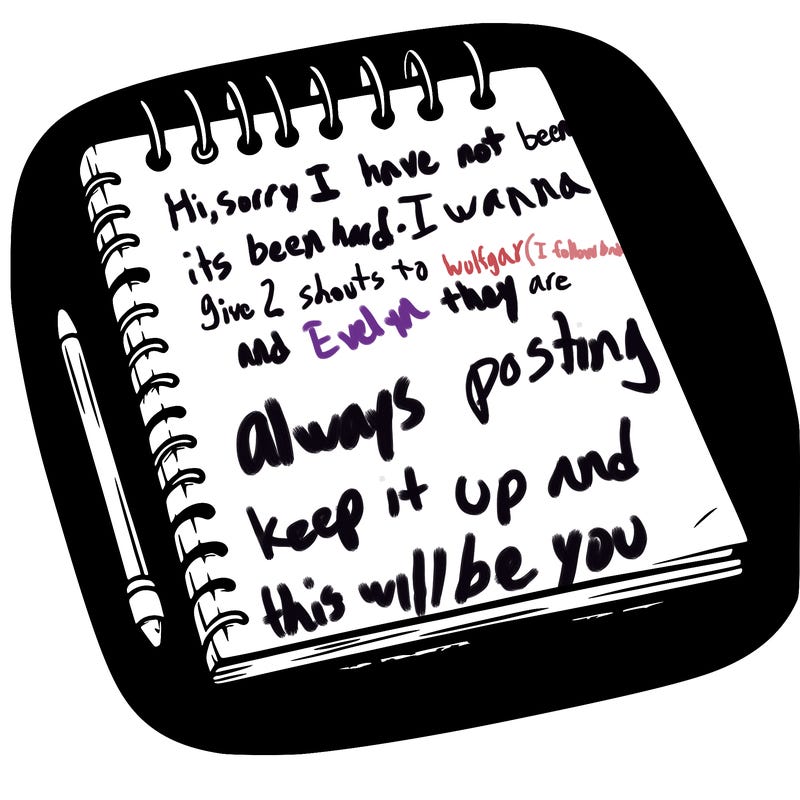 Hi, sorry I have not been
its been hard. I wanna
give 2 shouts to wulfgar (I follow
and Evelyn they are
always posting
keep it up and
this will be you